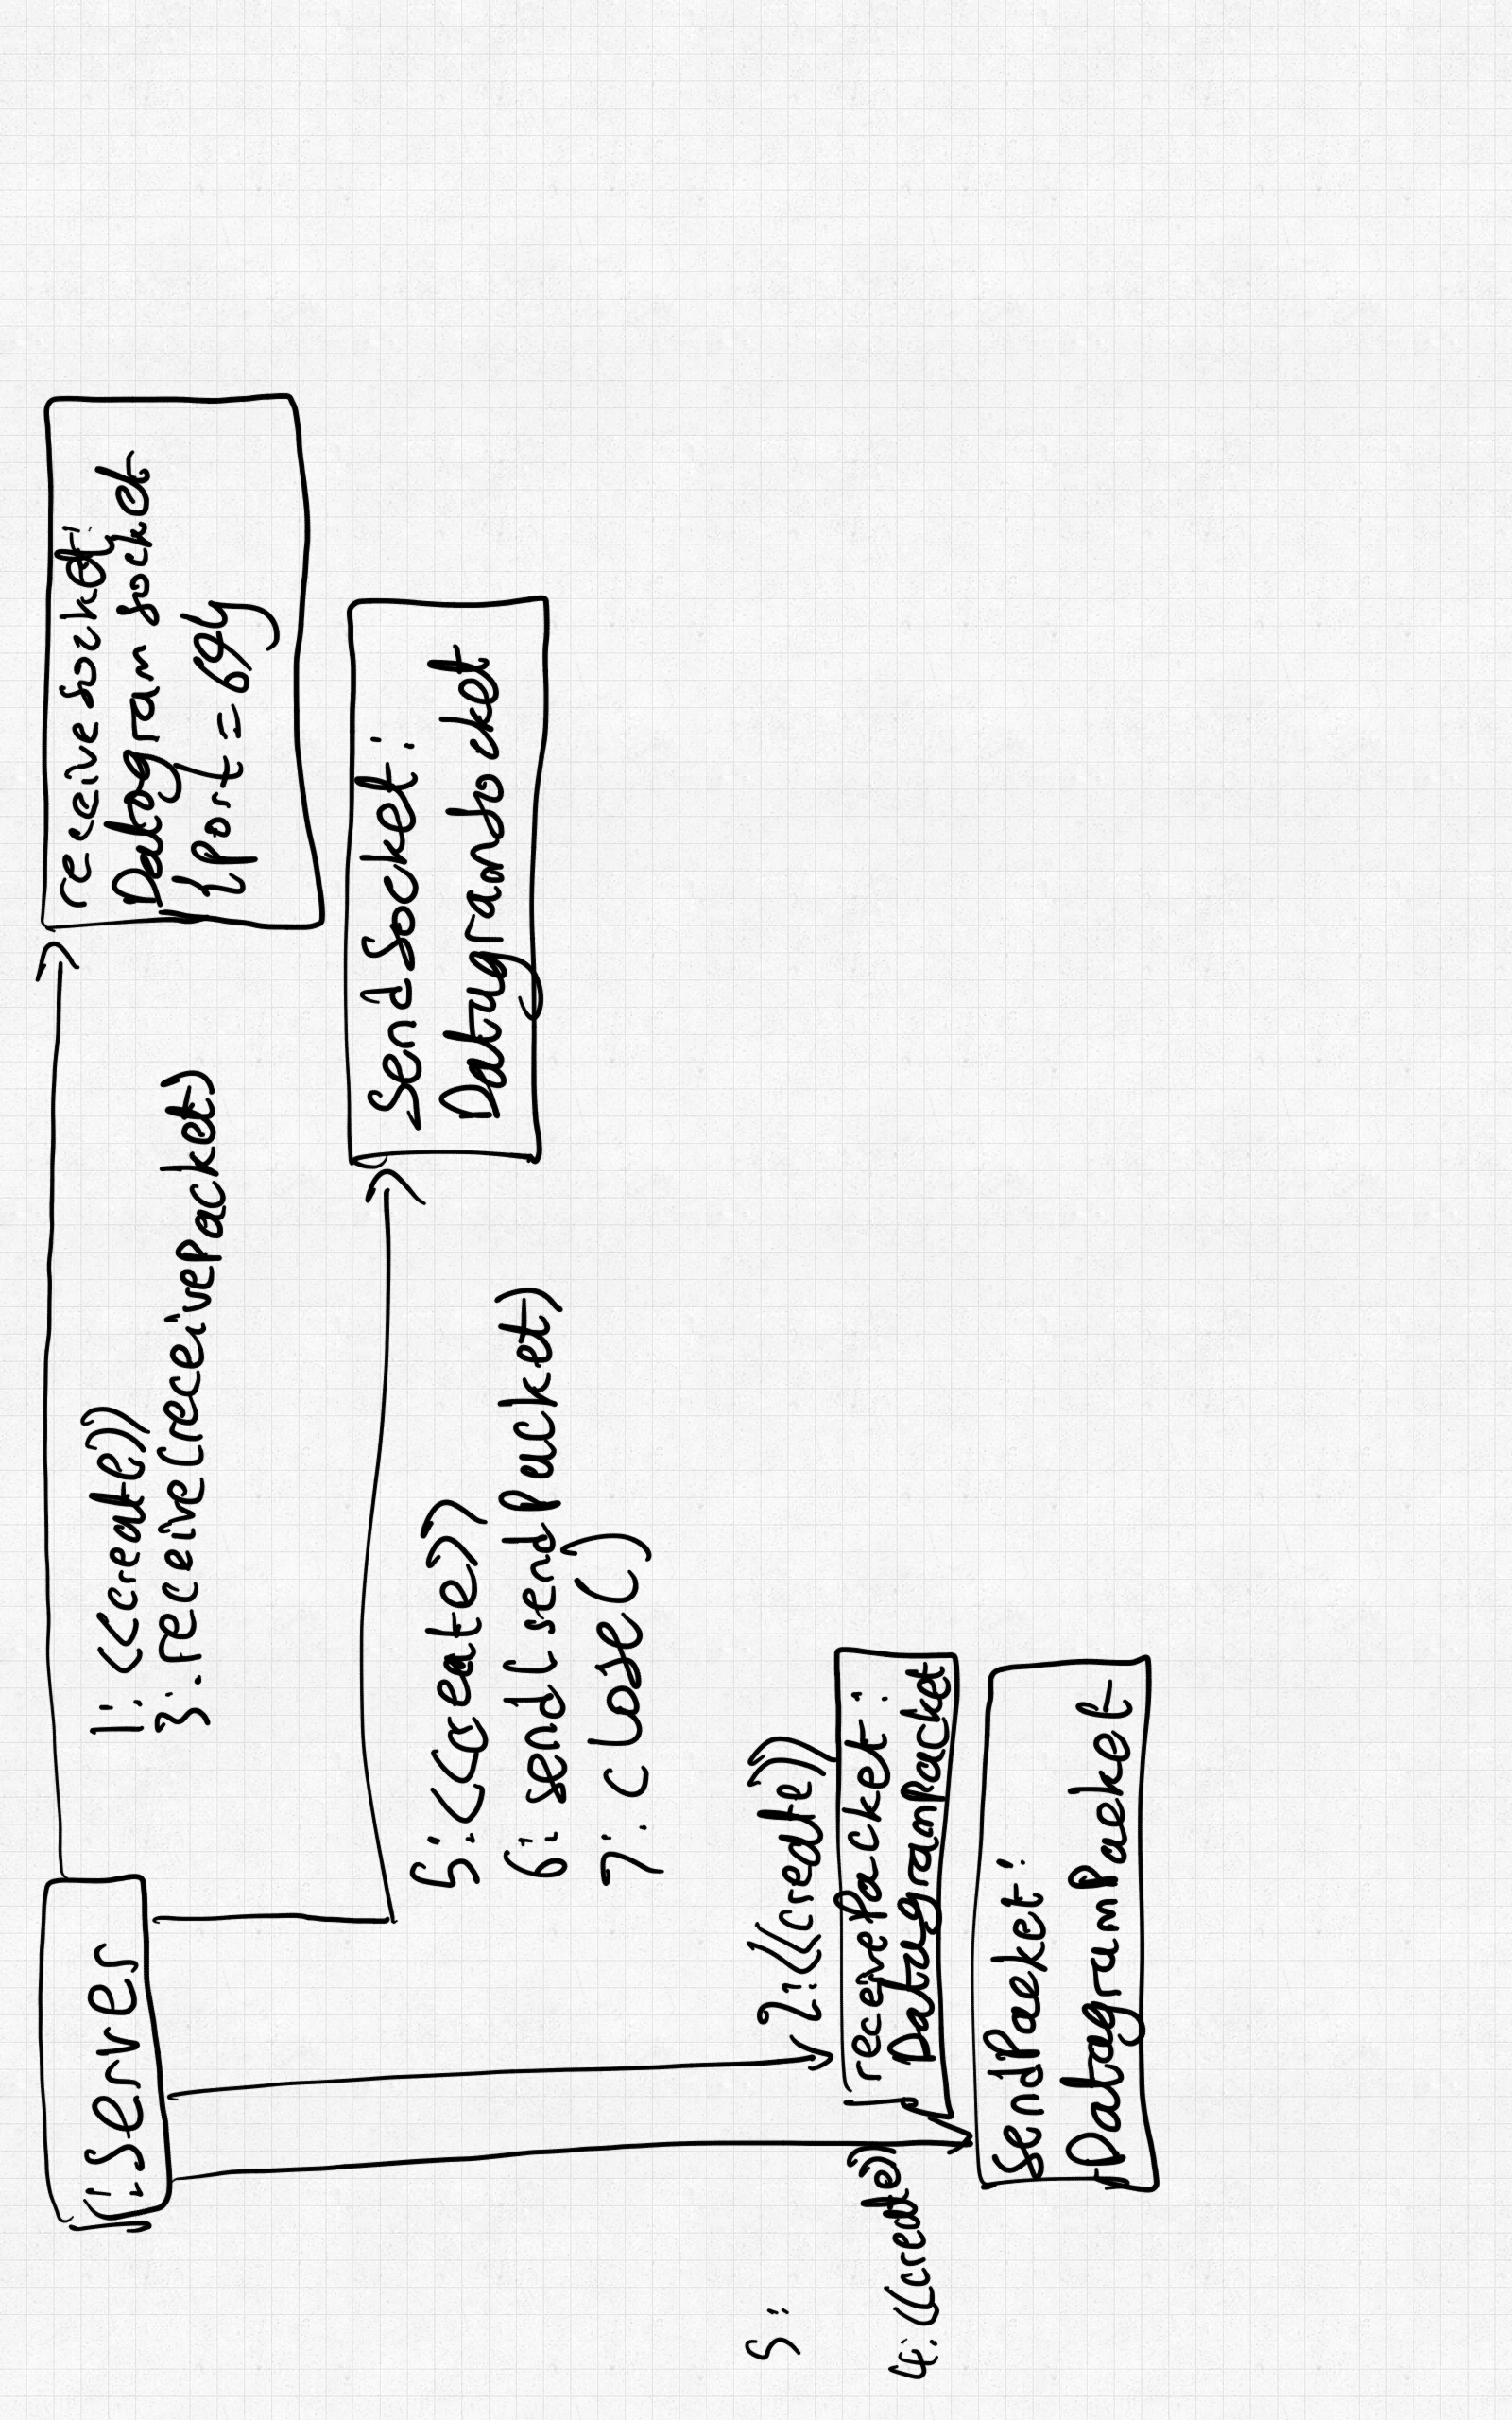 :Server
1: <<create>>
3: receive(receivePacket)
receive socket:
Datagram socket
{Port = 69}
5: <<create>>
6: send(sendPacket)
7: close()
Send Socket:
DatagramSocket
2: <<create>>
receivePacket:
DatagramPacket
5:
4: <<create>>
SendPacket:
DatagramPacket